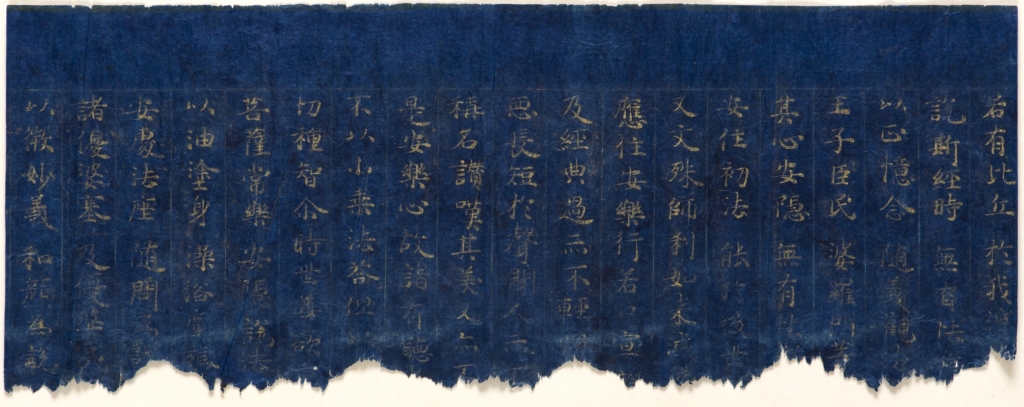 若有比丘 於我滅
說斯經時 無有怯
以正憶念 隨義觀
王子臣民 婆羅門等
其心安隱 無有
安住初法 能於後世
又文殊師利如來滅
應住安樂行若口宣
及經典過亦不輕
惡長短於聲聞人亦不
稱名讚嘆其美又亦不
是安樂心故諸有聽
不以小乘法答但
切種智尒時世尊欲
菩薩常樂 安隱說法
以油塗身 澡浴塵穢
安處法座 隨問為說
諸優婆塞 及優婆夷
以微妙義 和顏為說